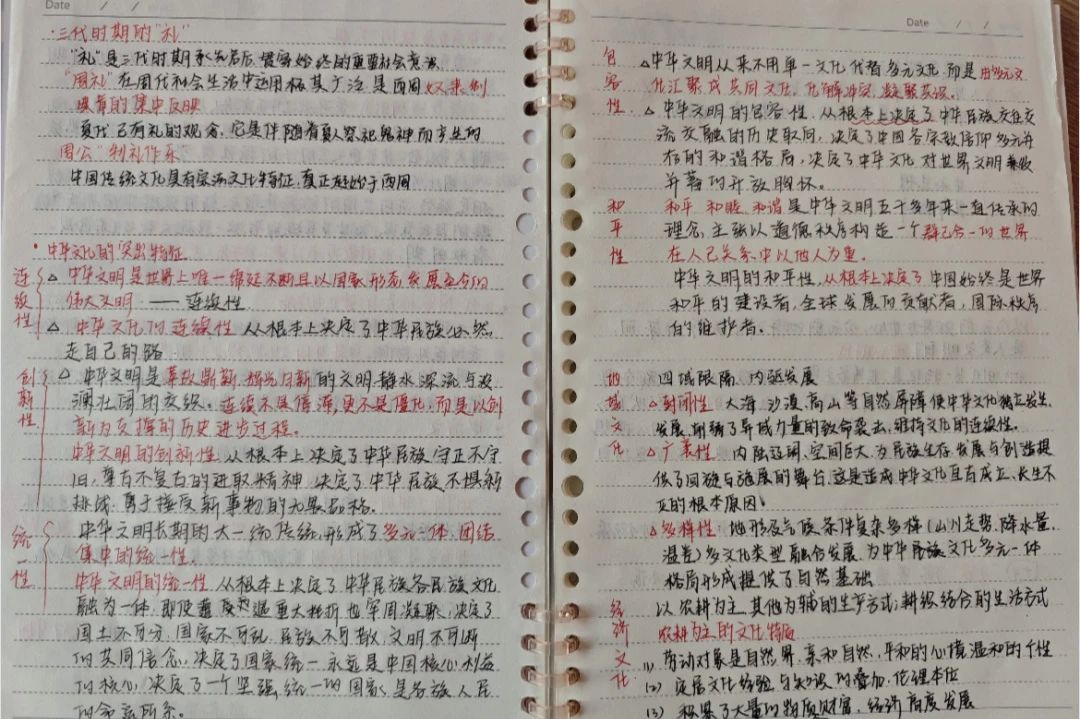 Date / /
·三代时期的"礼"
"礼"是三代时期承先启后、贯穿始终的重要社会意识
"周礼"在周代社会生活中运用极其广泛是西周奴隶制
城育的集中反映
夏代已有礼的观念,它是伴随着夏人祭祀鬼神而产生的
周公"制礼作乐
中国传统文化具有宗法文化特征,真正起始于西周
·中华文化的突出特征
连续性
△中华文明是世界上唯一绵延不断且以国家形态发展至今的
伟大文明 —— 连续性
△ 中华文化的连续性 从根本上决定了中华民族必然
走自己的路
创新性
△ 中华文明是革故鼎新、辉光日新的文明,静水深流与波
澜壮阔的交织。连续不是停滞,更不是僵化,而是以创
新为支撑的历史进步过程。
中华文明的创新性,从根本上决定了中华民族守正不守
旧,尊古不复古的进取精神,决定了中华民族不惧新
挑战,勇于接受新事物的无畏品格。
统一性
中华文明长期的大一统传统,形成了多元一体、团结
集中的统一性。
中华文明的统一性 从根本上决定了中华民族各民族文化
融为一体、即使遭遇重大挫折也牢固凝聚,决定了
国土不可分、国家不可乱、民族不可散、文明不可断
的共同信念,决定了国家统一永远是中国核心利益
的核心,决定了一个坚强统一的国家是各族人民
的命运所系。
Date / /
包容性
△中华文明从来不用单一文化代替多元文化,而是由多元文
化汇聚成共同文化,化解冲突,凝聚共识。
△中华文明的包容性,从根本上决定了中华民族交往交
流交融的历史取向,决定了中国各宗教信仰多元并
存的和谐格局,决定了中华文化对世界文明兼收
并蓄的开放胸怀。
和平性
和平 和睦 和谐是中华文明五千多年来一直传承的
理念,主张以道德秩序构造一个群己合一的世界
在人己关系中以他人为重。
中华文明的和平性,从根本上决定了中国始终是世界
和平的建设者,全球发展的贡献者,国际秩序
的维护者。
地域文化
四域限隔、内驱发展
△封闭性 大海、沙漠、高山等自然屏障使中华文化独立发生、
发展,削弱了异域力量的致命袭击,维持文化的连续性。
△广袤性 内陆辽阔、空间巨大,为民族生存、发展与创造提
供了回旋与施展的舞台,这是造成中华文化自有成立、长生不
亚的根本原因。
△多样性 地形及气候条件复杂多样(山川走势、降水量、
温差)多文化类型融合发展,为中华民族文化多元一体
格局形成提供了自然基础
经济文化
以农耕为主,其他为辅的生产方式,耕织结合的生活方式
农耕为主的文化特质
(1) 劳动对象是自然界,亲和自然,平和的心境温和的个性
(2) 定居文化经验与知识的叠加,伦理本位
(3) 积累了大量的物质财富,经济高度发展